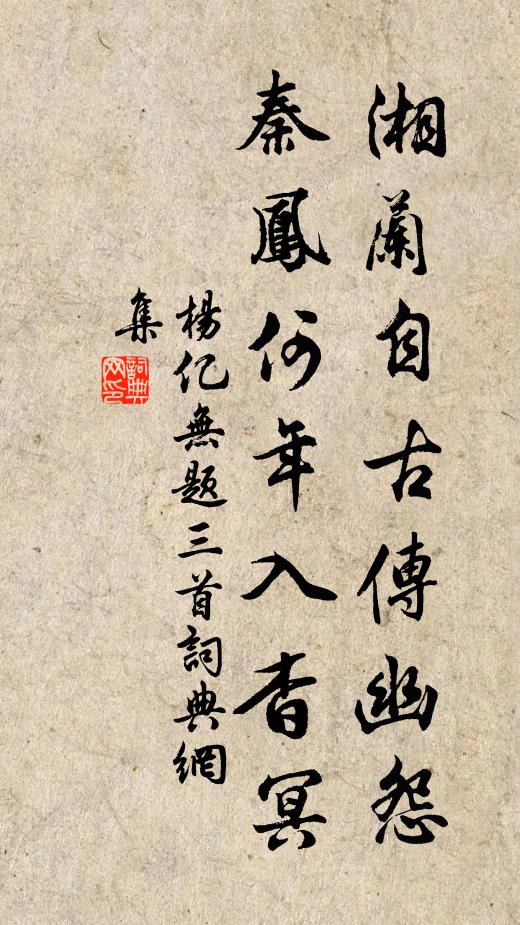 湘蘭自古傳幽怨
秦鳳何年入杳冥
楊億無題三首詞典網
集
詞典
网印